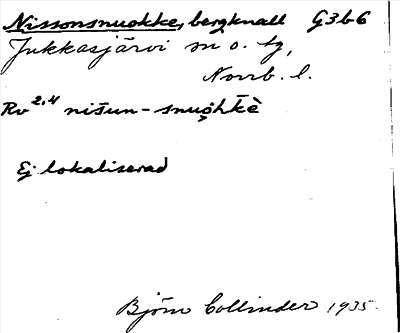 Nissonsnuokke, bergknall G3b6
Jukkasjärvi sn o. tg,
Norrb. l.
Rv 2,4 nišun-snuo̭hkè
Ej lokaliserad
Björn Collinder 1935.